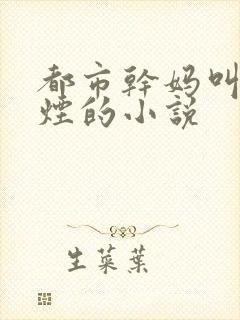 都市幹妈叫
煙的小説
生菜葉